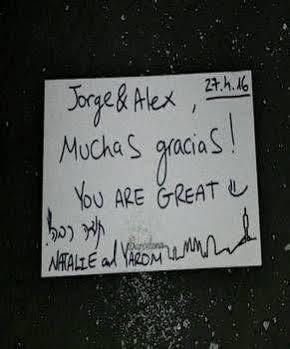 Jorge & Alex, 27.4.16
Muchas gracias!
YOU ARE GREAT
תודה רבה
NATALIE and YAROM
Barcelona